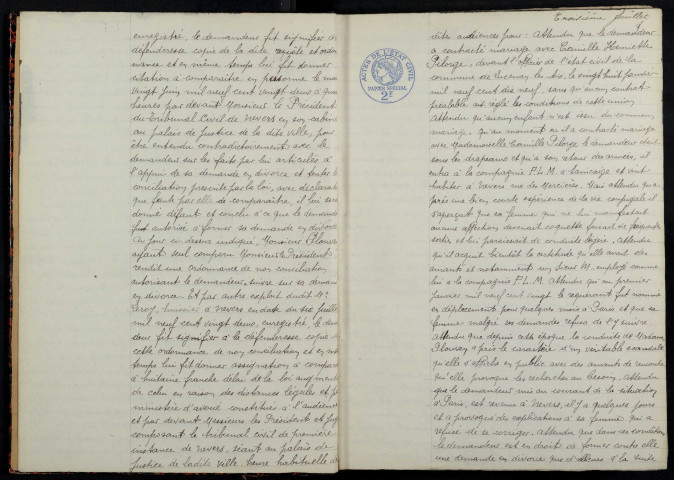 enregistré, le demandeur fit signifier à la
défenderesse copie de la dite requête et ordon
nance et en même temps lui fit donner
citation à comparaître en personne le mar
vingt juin mil neuf cent vingt deux à quatre
heures par devant Monsieur le Président
du Tribunal Civil de Nevers en son cabinet
au palais de Justice de la dite ville, pour
être entendu contradictoirement avec le
demandeur sur les faits par lui articulés à
l'appui de sa demande en divorce et tenter la
conciliation prescrite par la loi, avec déclaration
que faute par elle de comparaître, il lui serait
donné défaut et conclu à ce que le demandeur
fut autorisé à former sa demande en divorce
Au jour ci-dessus indiqué, Monsieur
ayant seul comparu Monsieur le Président
rendit une ordonnance de non conciliation
autorisant le demandeur à suivre sur sa demande
en divorce. Et par autre exploit dudit Me
Leroy, huissier à Nevers en date du six juillet
mil neuf cent vingt deux, enregistré, le deman
deur fit signifier à la défenderesse copie de
cette ordonnance de non conciliation et en même
temps lui fit donner assignation à comparaître
à huitaine franche délai de la loi augmenté
de celui en raison des distances légales et par
ministère d'avoué constitué à l'audience
et par devant Messieurs les Président et Juges
composant le tribunal civil de première
instance de Nevers, séant au palais de
Justice de ladite ville, heure habituelle des
Troisième feuillet
ACTES DE L'ETAT CIVIL
PAPIER SPÉCIAL
2F
dites audiences pour : Attendu que le demandeur
a contracté mariage avec Camille Henriette
Pelorge, devant l'officier de l'état civil de la
commune de Lucenay les Aix, le vingt huit janvier
mil neuf cent dix neuf, sans qu'aucun contrat
préalable ait réglé les conditions de cette union
Attendu qu'aucun enfant n'est issu du commun
mariage. Qu'au moment où il a contracté mariage
avec Mademoiselle Camille Pelorge le demandeur était
sous les drapeaux et qu'à son retour des armées, il
entra à la compagnie P.L.M. à Vauzelles et vint
habiter à Nevers rue des Merciers. Mais attendu qu'a
près une bien courte expérience de la vie conjugale il
s'aperçut que sa femme qui ne lui manifestait
aucune affection devenait coquette faisait de fréquentes
sorties et lui paraissait de conduite légère. Attendu
qu'il acquit bientôt la certitude qu'elle avait des
amants et notamment un sieur M, employé comme
lui à la compagnie P.L.M. Attendu qu'au premier
janvier mil neuf cent vingt le requérant fut nommé
en déplacement pour quelques mois à Paris et que sa
femme malgré ses demandes refusa de l'y suivre
Attendu que depuis cette époque la conduite de Madame
a pris le caractère d'un véritable scandale
qu'elle s'afficha en public avec des amants de rencontre
qu'elle provoque les recherches au besoin. Attendu
que le demandeur mis au courant de la situation
à Paris, est revenu à Nevers, il y a quelques jours
et a provoqué des explications à sa femme qui a
refusé de se corriger. Attendu que dans ces conditions
le demandeur est en droit de former contre elle
une demande en divorce que d'ailleurs à la suite